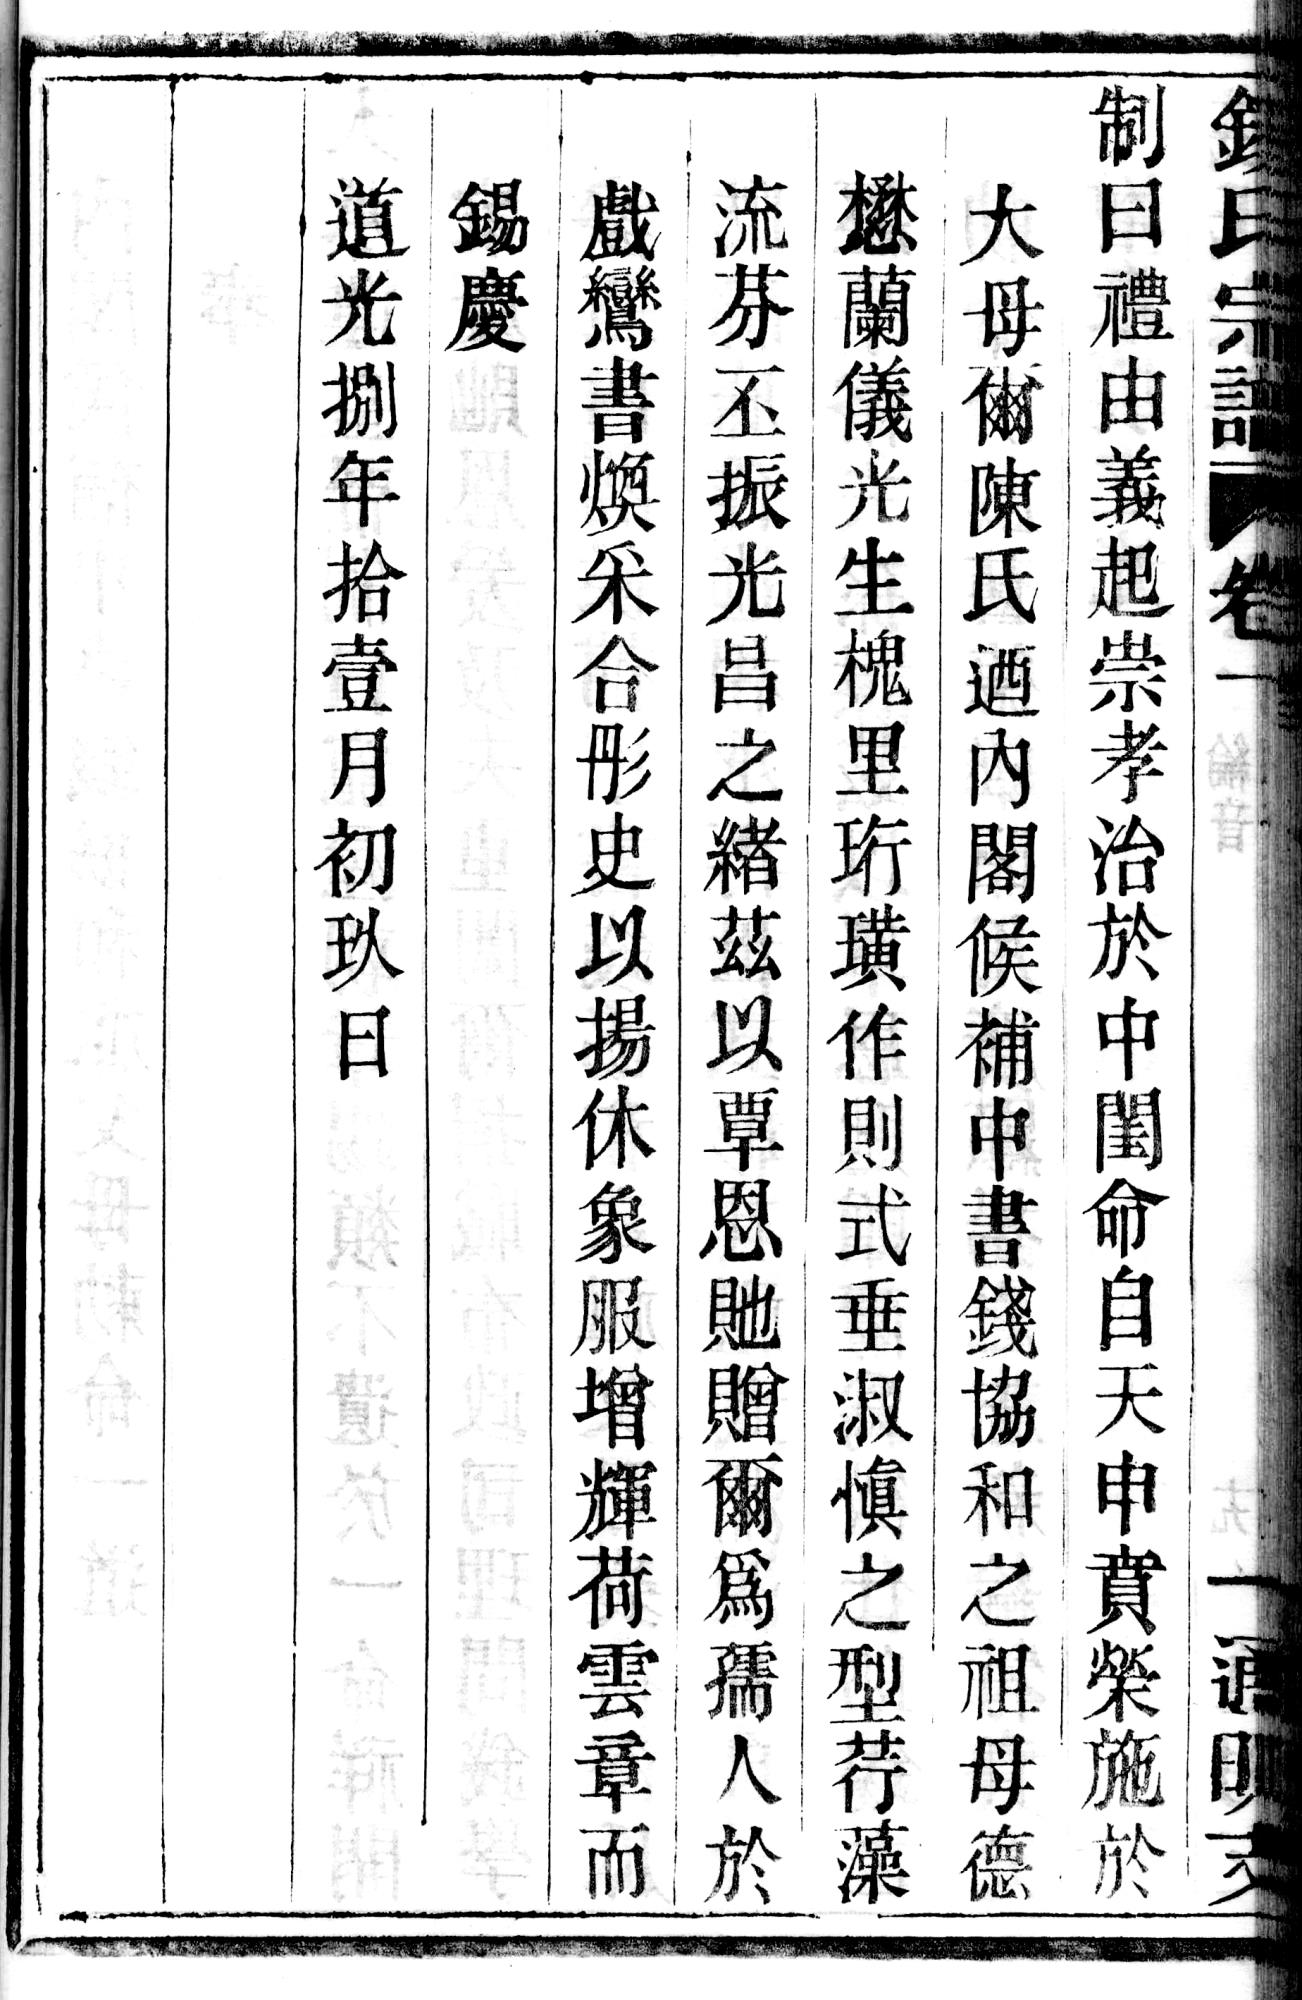 錢氏宗譜 卷一 綸音 一 通明支
制曰禮由義起崇孝治於中閨命自天申賁榮施於
大母爾陳氏迺內閣候補中書錢協和之祖母德
懋蘭儀光生槐里珩璜作則式垂淑慎之型荇藻
流芬丕振光昌之緒茲以覃恩貤贈爾爲孺人於
戲鸞書煥采合彤史以揚休象服增輝荷雲章而
錫慶
道光捌年拾壹月初玖日